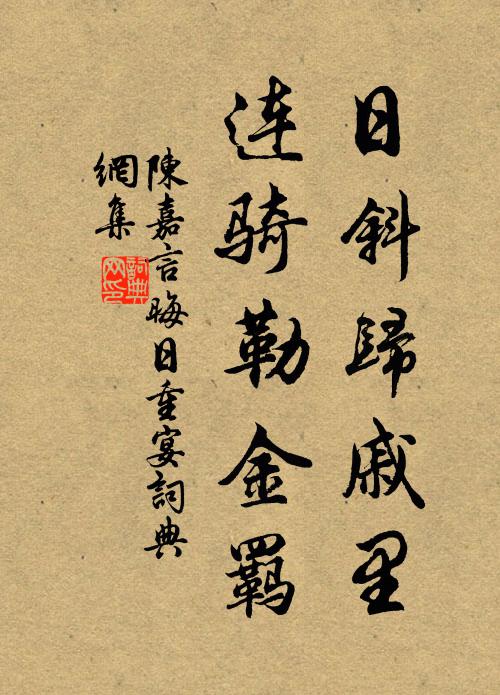 日斜歸戚里
連騎勒金羈
陳嘉言晦日重宴詞典
網集
詞典
网印